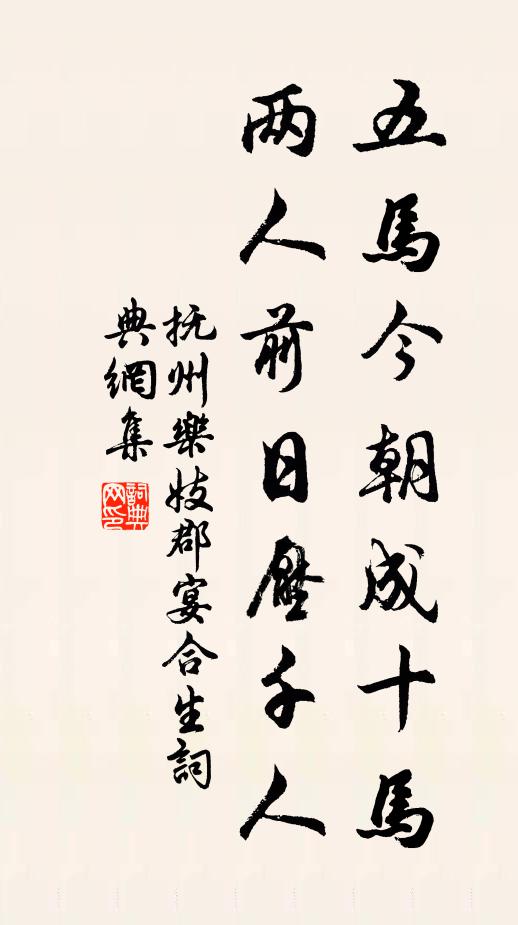 五馬今朝成十馬
两人前日壓千人
抚州樂妓郡宴合生詞
典網集
詞典网印